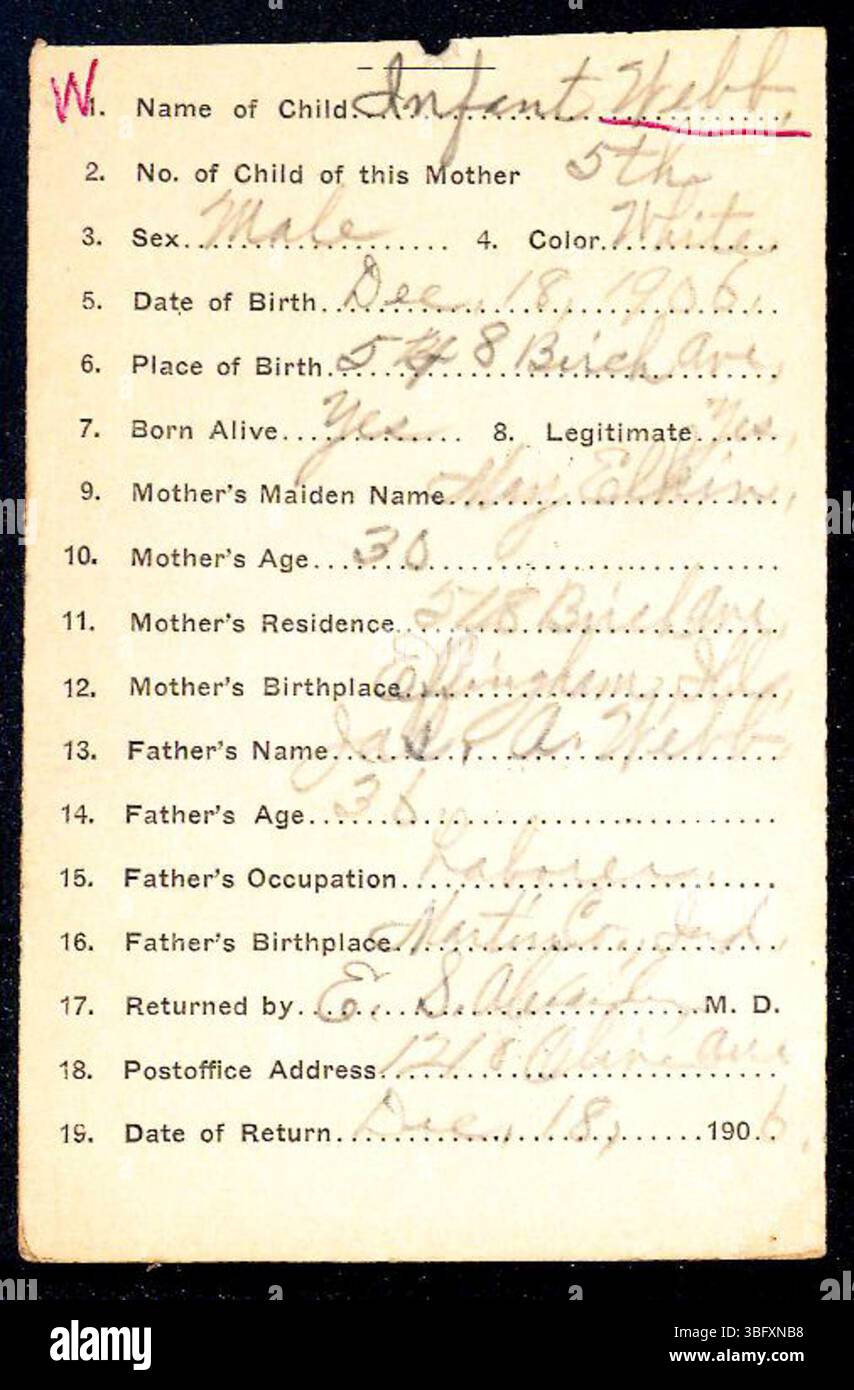 W
1. Name of Child Infant Webb
2. No. of Child of this Mother 5th
3. Sex Male 4. Color White
5. Date of Birth Dec. 18, 1906.
6. Place of Birth 548 Birch Ave.
7. Born Alive Yes 8. Legitimate Yes.
9. Mother's Maiden Name May
10. Mother's Age 30
11. Mother's Residence Birch Ave.
12. Mother's Birthplace Effingham, Ills.
13. Father's Name A. Webb
14. Father's Age 36
15. Father's Occupation Laborer.
16. Father's Birthplace Martin Co., Ind.
17. Returned by E. S. M. D.
18. Postoffice Address 1218 Olive Ave
19. Date of Return Dec. 18, 1906.
alamy
Image ID: 3BFXNB8
www.alamy.com